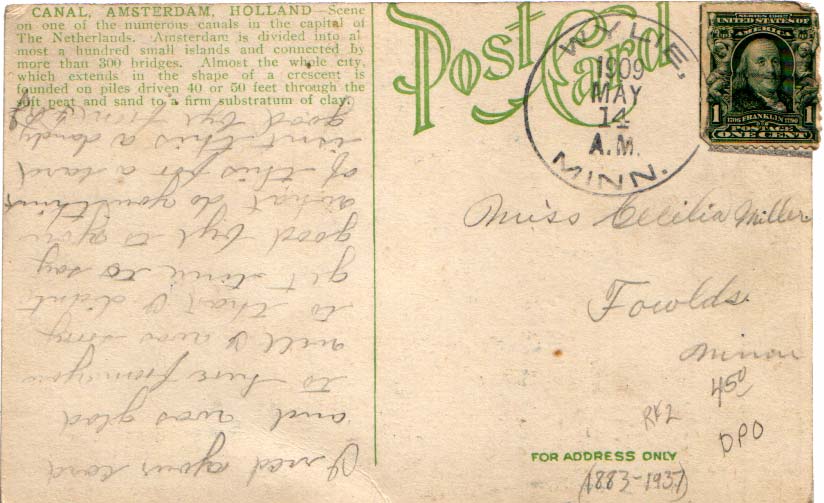 CANAL, AMSTERDAM, HOLLAND—Scene
on one of the numerous canals in the capital of
The Netherlands. Amsterdam is divided into al
most a hundred small islands and connected by
more than 300 bridges. Almost the whole city,
which extends in the shape of a crescent is
founded on piles driven 40 or 50 feet through the
soft peat and sand to a firm substratum of clay.
Post Card
WYLIE,
1909
MAY
14
A.M.
MINN.
SERIES 1902
UNITED STATES OF
AMERICA
1 1
1706 FRANKLIN 1790
POSTAGE
ONE CENT
Miss Cecilia Miller
Fowlds.
Minn
450
R42
DPO
FOR ADDRESS ONLY
(1883-1937)
I red your card
and was glad
to here from you
will I was sorry
to that I didnt
get time to say
good bye to you
what do you think
of this for a card
isnt this a dandy
good bye from